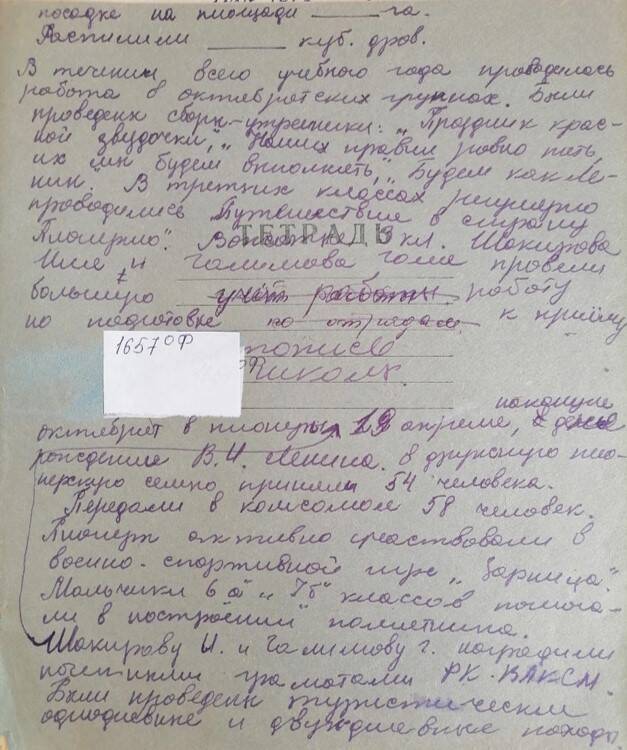 посадке на площади ____ га.
Распилили ____ куб. дров.
В течении всего учебного года проводилась
работа в октябрятских группах. Были
проведены сборы-утренники: „Праздник крас-
ной звездочки", „Наших правил ровно пять,
их мы будем выполнять", „Будем как Ле-
нин". В третьих классах регулярно
проводились „Путешествие в страну
Пионерию". Вожатые 8 кл. Шакирова
ТЕТРАДЬ
и Галимова провели
большую учёт работы работу
по подготовке по отрядам к приёму
1657 ОФ
октябрят в пионеры 19 апреля, в день
рождение В.И. Ленина. в дружную пио-
нерскую семью приняли 54 человека.
Передали в комсомол 58 человек.
Пионеры активно участвовали в
военно-спортивной игре „Зарница".
Мальчики 6а и 7б классов помога-
ли в построении памятника.
Шакирову И. и Галимову Г. наградили
почётными грамотами РК ВЛКСМ.
Были проведены туристические
однодневные и двухдневные походы